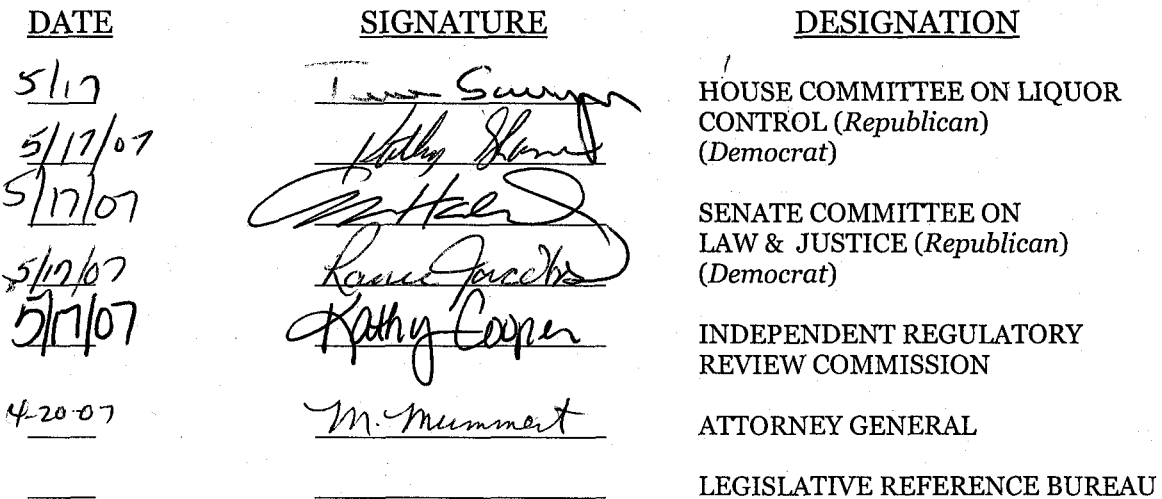 DATE SIGNATURE DESIGNATION
5/17 HOUSE COMMITTEE ON LIQUOR
5/17/07 Kathy CONTROL (Republican)
(Democrat)
5/17/07 SENATE COMMITTEE ON
LAW & JUSTICE (Republican)
5/17/07 (Democrat)
5/17/07 Kathy Cooper INDEPENDENT REGULATORY
REVIEW COMMISSION
4-20-07 M. Mummert ATTORNEY GENERAL
LEGISLATIVE REFERENCE BUREAU